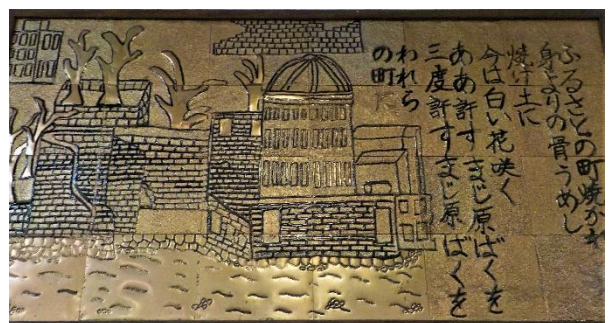 ふるさとの町焼かれ
身よりの骨うめし
焼け土に
今は白い花咲く
ああ許すまじ原ばくを
三度許すまじ原ばくを
われら
の町に